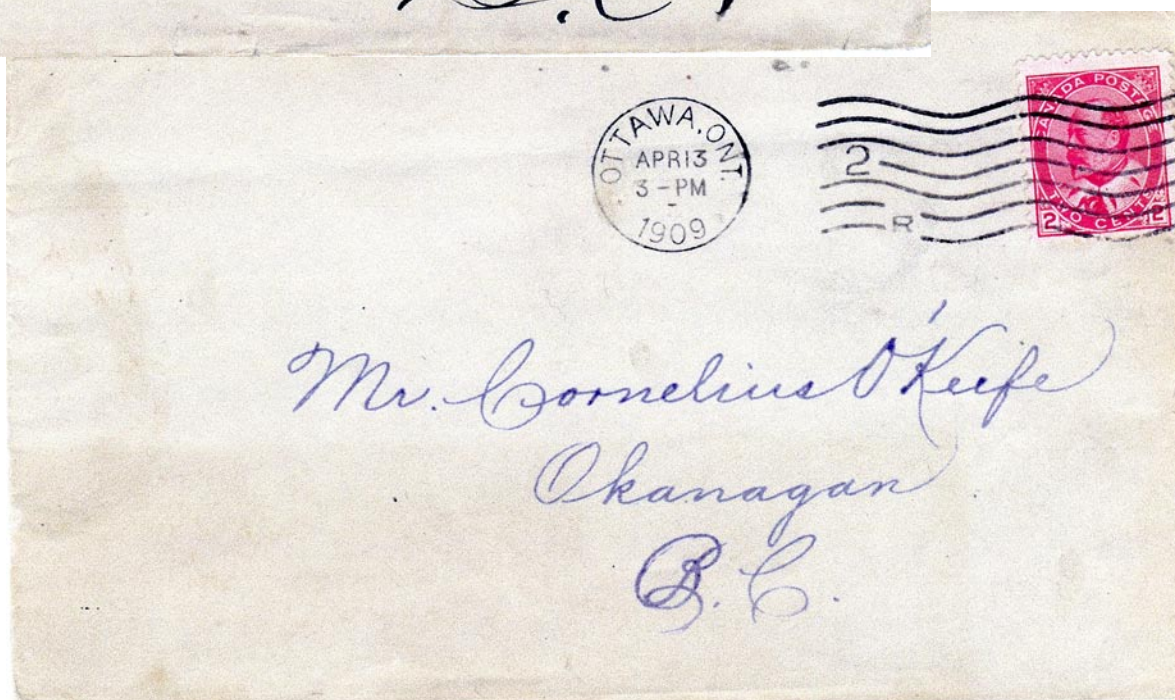 B.C.
OTTAWA, ONT.
APR 13
3 - PM
1909
2
R
CANADA POSTAGE
2 TWO CENTS 2
Mr. Cornelius O'Keefe
Okanagan
B.C.